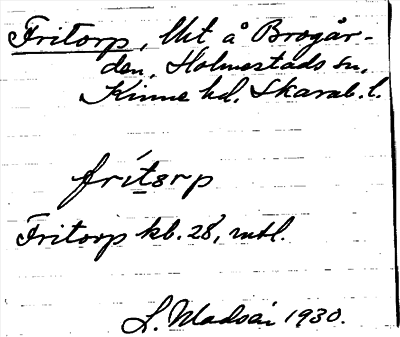 Fritorp, lht å Brogår-
den, Holmestads sn,
Kinne hd. Skarab. l.
frítɜrp
Fritorp kb. 28, mtl.
L. Madsén 1930.